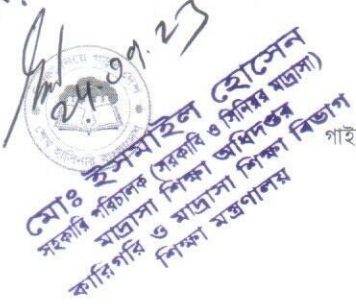 ২৫.০৭.২৩
মোঃ ইসমাইল হোসেন
সহকারি পরিচালক (সরকারি ও সিনিয়র মাদ্রাসা)
মাদ্রাসা শিক্ষা অধিদপ্তর
কারিগরি ও মাদ্রাসা শিক্ষা বিভাগ
শিক্ষা মন্ত্রণালয়
গাই